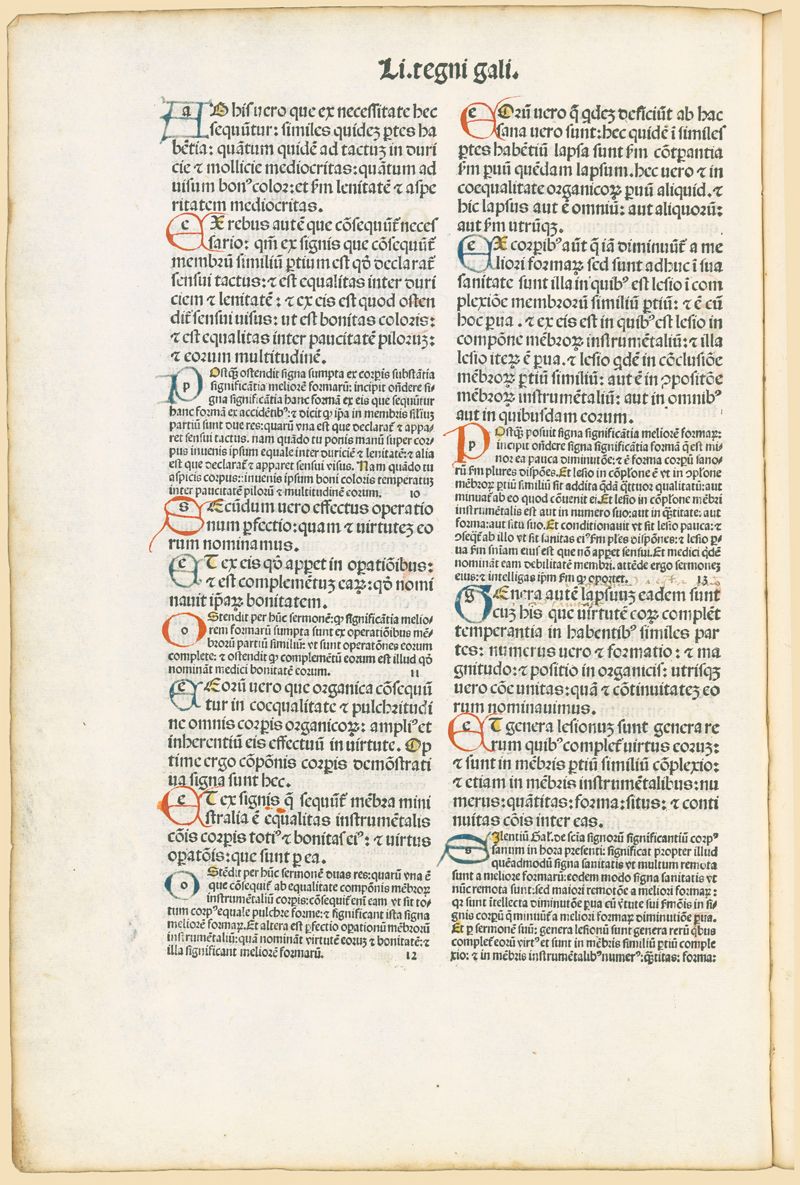 Li.tegni gali.
AB his uero que ex necessitate hec
sequũtur: similes quideꝫ ꝑtes ha
bẽtia: quãtum quidẽ ad tactuꝫ in duri
cie ⁊ mollicie mediocritas: quãtum ad
uisum bonꝰ color: et ẜm lenitatẽ ⁊ aspe
ritatem mediocritas.
EX rebus autẽ que cõsequũt̃ neces
sario: qm̃ ex signis que cõsequũt̃
membrũ similiũ ꝑtium est qd̃ declarat̃
sensui tactus: ⁊ est equalitas inter duri
ciem ⁊ lenitatẽ: ⁊ ex eis est quod osten
dit̃ sensui uisus: ut est bonitas coloris:
⁊ est equalitas inter paucitatẽ piloruꝫ:
⁊ eorum multitudinẽ.
POstq̃ꝫ ostendit signa sumpta ex corꝑis substãtia
significãtia meliorẽ formarũ: incipit oñdere si-
gna significãtia hanc formã ex eis que sequũtur
hanc formã ex accidẽtibꝰ: ⁊ dicit ꝙ ipa in membris siĩliuꝫ
partiũ sunt due res: quarũ vna est que declarat̃ ⁊ appa-
ret sensui tactus. nam quãdo tu ponis manũ super cor-
pus inuenis ipsum equale inter duriciẽ ⁊ lenitatẽ: ⁊ alia
est que declarat̃ ⁊ apparet sensui visus. Nam quãdo tu
aspicis corpus: inuenis ipsum boni coloris temperatuꝫ
inter paucitatẽ pilorũ ⁊ multitudinẽ eorum. 10
SEcũdum uero effectus operatio
num ꝑfectio: quam ⁊ uirtuteꝫ eo
rum nominamus.
ET ex eis qd̃ appꝫet in oꝑatiõibus:
⁊ est complemẽtuꝫ eaꝝ: qd̃ nomi
nauit ipãꝝ bonitatem.
OStendit per hũc sermonẽ: ꝙ significãtia melio-
rem formarũ sumpta sunt ex operatiõibus mẽ-
brorũ partiũ similiũ: vt sunt operatões eorum
complete: ⁊ ostendit ꝙ complemẽtũ eorum est illud qd̃
nominãt medici bonitatẽ eorum. 11
EEorũ uero que organica cõsequũ
tur in coequalitate ⁊ pulchritudi
ne omnis corꝑis organicoꝝ: ampliꝰ et
inherentiũ eis effectuũ in uirtute. Op
time ergo cõpõnis corꝑis demõstrati
ua signa sunt hec.
ET ex signis q̃ sequũt̃ mẽbra mini
stralia ẽ equalitas instrumẽtalis
cõis corꝑis totiꝰ ⁊ bonitas eiꝰ: ⁊ uirtus
oꝑatõis: que sunt ꝑ ea.
OStẽdit per hũc sermonẽ duas res: quarũ vna ẽ
que cõsequit̃ ab equalitate compõnis mẽbroꝝ
instrumẽtaliũ corꝑis: cõsequit̃ em̃ eam vt sit to-
tum corpꝰ equale pulchre forme: ⁊ significant ista signa
meliorẽ formaꝝ. Et altera est ꝑfectio operationũ mẽbrorũ
instrumẽtaliũ: quã nominãt virtutẽ eoruꝫ ⁊ bonitatẽ: ⁊
illa significant meliorẽ formarũ. 12
EOrũ uero q̃ qdeꝫ deficiũt ab hac
sana uero sunt: hec quidẽ ĩ similes
ꝑtes habẽtiũ lapsa sunt ẜm cõtꝑantia
ẜm ꝑuũ quẽdam lapsum. hec uero ⁊ in
coequalitate organicoꝝ ꝑuũ aliquid. ⁊
hic lapsus aut ẽ omniũ: aut aliquorũ:
aut ẜm utrũqꝫ.
EX corꝑibꝰ aũt q̃ iã diminuũt̃ a me
liori formaꝝ sed sunt adhuc ĩ sua
sanitate sunt illa in quibꝰ est lesio ĩ com
plexiõe membrorũ similiũ ꝑtiũ: ⁊ ẽ cũ
hoc ꝑua. ⁊ ex eis est in quibꝰ est lesio in
compõne mẽbroꝝ instrumẽtaliũ: ⁊ illa
lesio iteꝝ ẽ ꝑua. ⁊ lesio qdẽ in cõclusiõe
mẽbroꝝ ꝑtiũ similiũ: aut ẽ in ꝯpositõe
mẽbroꝝ instrumẽtaliũ: aut in omnibꝰ
aut in quibusdam eorum.
POstq̃ꝫ posuit signa significãtia meliorẽ formaꝝ:
incipit oñdere signa significãtia formã q̃ est mi-
nor ea pauca diminutõe: ⁊ ẽ forma corpũ sano-
rũ ẜm plures dispões. Et lesio in cõplõne ẽ vt in ꝯplõne
mẽbroꝝ ꝑtiũ similiũ sit addita qdã q̃ttuor qualitatũ: aut
minuat̃ ab eo quod cõuenit ei. Et lesio in cõplõne mẽbri
instrumẽtalis est aut in numero suo: aut in q̃titate: aut
forma: aut situ suo. Et conditionauit vt sit lesio pauca: ⁊
ꝯseqt̃ ab illo vt sit sanitas eiꝰ ẜm ples dispõnes: ⁊ lesio ꝑ-
ua ẜm sñiam eius est que nõ appet sensui. Et medici qdẽ
nominãt eam debilitatẽ membri. attẽde ergo sermoneꝫ
eius: ⁊ intelligas ipm̃ ẜm ꝙ oportet. 13
GEnera autẽ lapsuuꝫ eadem sunt
cuꝫ his que uirtutẽ eoꝝ complẽt
temperantia in habentibꝰ similes par
tes: numerus uero ⁊ formatio: ⁊ ma
gnitudo: ⁊ positio in organicis: utrisqꝫ
uero cõe unitas: quã ⁊ cõtinuitateꝫ eo
rum nominauimus.
ET genera lesionuꝫ sunt genera re
rum quibꝰ complet̃ uirtus eoruꝫ:
⁊ sunt in mẽbris ꝑtiũ similiũ cõplexio:
⁊ etiam in mẽbris instrumẽtalibus: nu
merus: quãtitas: forma: situs: ⁊ conti
nuitas cõis inter eas.
SIlentiũ Gal. de scĩa signorũ significantiũ corpꝰ
sanum in hora presenti: significat propter illud
quẽadmodũ signa sanitatis vt multum remota
sunt a meliore formarũ: eodem modo signa sanitatis vt
nũc remota sunt: sed maiori remotõe a meliori formaꝝ:
qꝛ sunt ĩtellecta diminutõe ꝑua cũ v̓tute sui ẜmõis in si-
gnis corpũ q̃ minuũt̃ a meliori formaꝝ diminutiõe ꝑua.
Et ꝑ sermonẽ suũ: genera lesionũ sunt genera rerũ qbus
complet̃ eorũ virtꝰ et sunt in mẽbris similiũ ꝑtiũ comple
xio: ⁊ in mẽbris instrumẽtalibꝰ numerꝰ: q̃titas: forma: